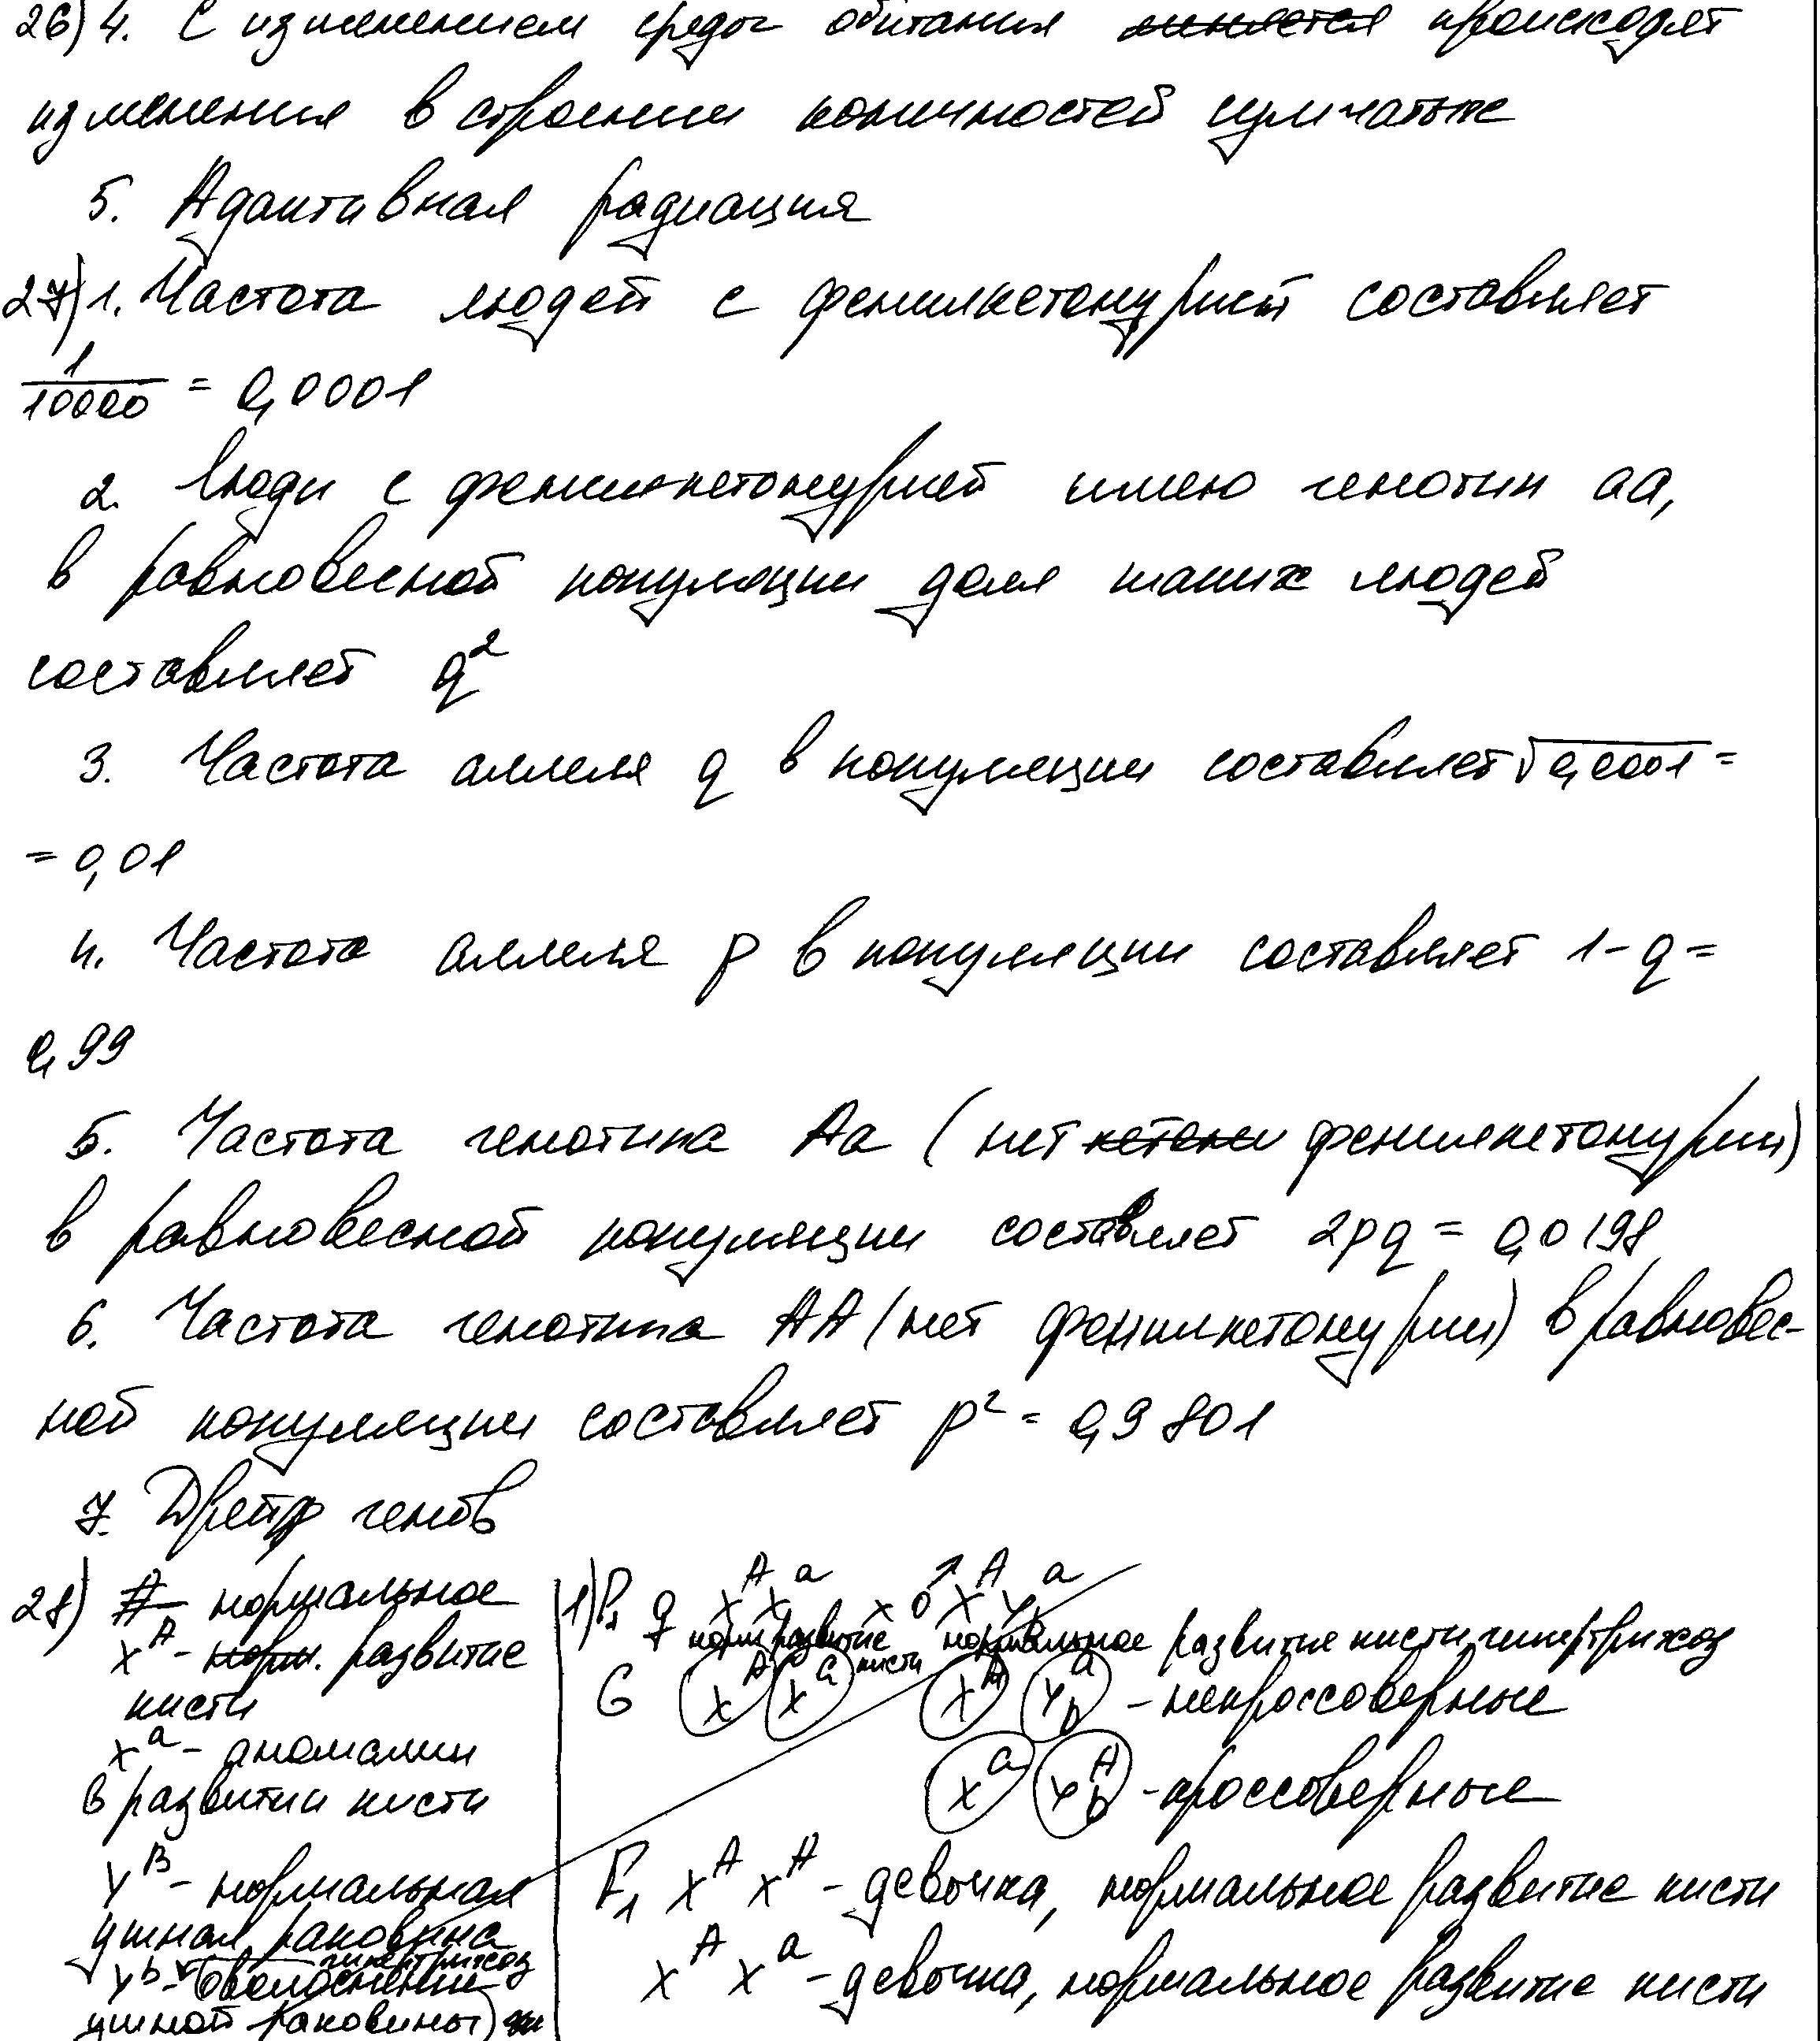 26) 4. С изменением среды обитания меняется происходят
изменения в строении конечностей сумчатых
5. Адаптивная радиация
27) 1. Частота людей с фенилкетонурией составляет
1/10000 = 0,0001
2. Люди с фенилкетонурией имею генотип аа,
в равновесной популяции доля таких людей
составляет q²
3. Частота аллеля q в популяции составляет √0,0001 =
= 0,01
4. Частота аллеля p в популяции составляет 1-q=
0,99
5. Частота генотипа Аа (нет кетони фенилкетонурии)
в равновесной популяции составляет 2pq = 0,0198
6. Частота генотипа АА (нет фенилкетонурии) в равновес-
ной популяции составляет p² = 0,9801
7. Дрейф генов
28) А - нормальное
X^A - норм. развитие
кисти
X^a - аномалии
в развитии кисти
Y^B - нормальная
ушная раковина
гипертрихоз
Y^b - (оволосение
ушной раковины)
1) P₁ ♀ X^A X^a x ♂ X^A Y_b^a
норм развитие кисти нормальное развитие кисти, гипертрихоз
G X^A X^a X^A Y_b^a - некроссоверные
X^a Y_b^A - кроссоверные
F₁ X^A X^A - девочка, нормальное развитие кисти
X^A X^a - девочка, нормальное развитие кисти